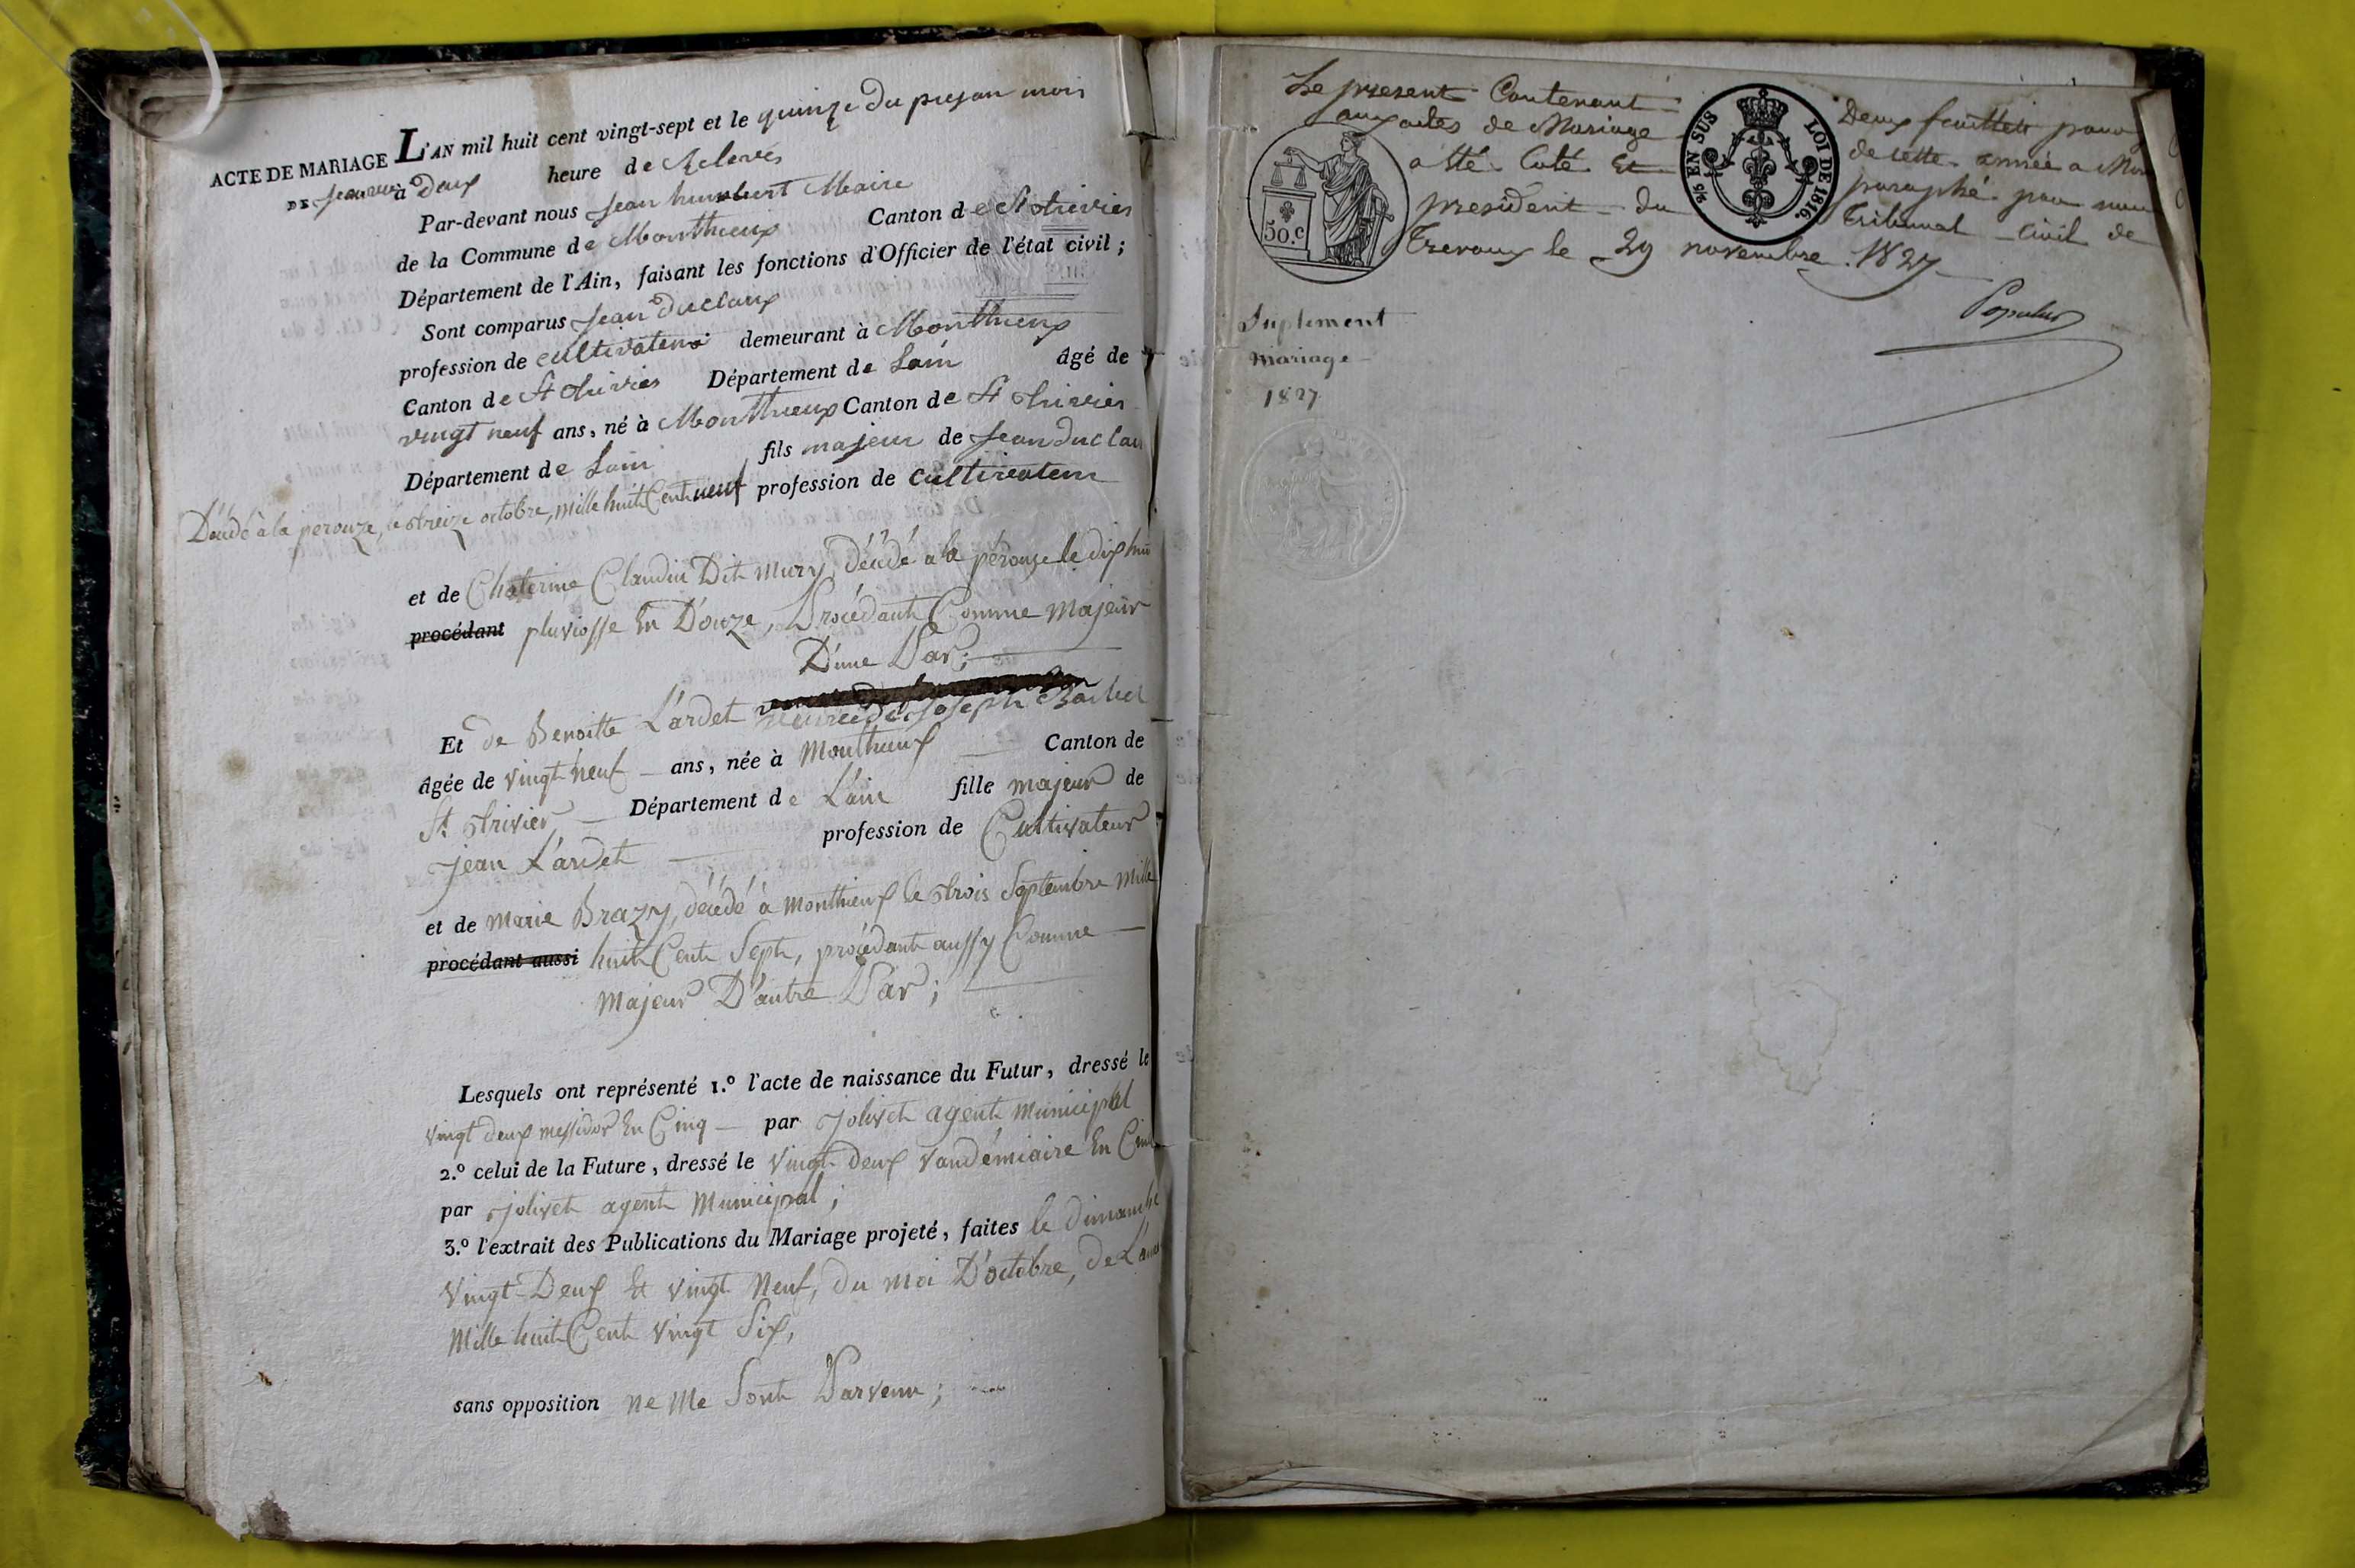 ACTE DE MARIAGE L'AN mil huit cent vingt-sept et le quinze du presan mois
DE à deux heure de Relevés
Par-devant nous Jean humbert Maire
de la Commune de Monthieux Canton de St trivier
Département de l'Ain, faisant les fonctions d'Officier de l'état civil ;
Sont comparus Jean Duclaux
profession de cultivateur demeurant à Monthieux
Canton de St trivier Département de Lain âgé de
vingt neuf ans, né à Monthieux Canton de St trivier
Département de Lain fils majeur de Jean Duclau
Décédé à la perouze, le treize octobre, mille huit Cent neuf profession de cultivateur
et de Chaterine Claudin Dit mury, Décédé a la pérouze le dix hui
procédant pluviosse En Douze, Procédant Comme Majeur
D'une Par ;
Et de Benoitte L'ardet Joseph
âgée de vingt neuf ans, née à Monthieux Canton de
St. trivier Département de L'ain fille majeur de
jean L'ardet profession de Cultivateur
et de Marie Brazy, décédé à Monthieux le trois Septembre Mille
procédant aussi huit Cent Sept, procédant aussy Comme
Majeur D'autre Par ;
Lesquels ont représenté 1.º l'acte de naissance du Futur, dressé le
vingt deux messidor En Cinq par jolivet agent Municipal
2.º celui de la Future, dressé le vingt deux vandémiaire En Cinq
par jolivet agent Municipal ;
3.º l'extrait des Publications du Mariage projeté, faites le dimanche
vingt-Deux Et vingt Neuf, du moi D'octobre, de L'an
Mille huit Cent vingt Six,
sans opposition ne Me Sont Parvenu ;
Le present Contenant Deux feuillets pour
aux actes de Mariage de cette année a Mon
a été Coté Et paraphé par nous
president du Tribunal Civil de
Trevoux le 29 novembre 1827
Populus
50.c
EN SUS
LOI DE 1816.
Suplement
Mariage
1827